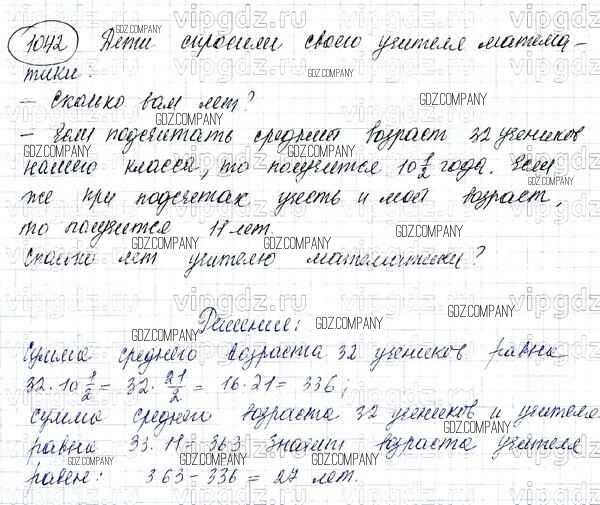 1042 Дети спросили своего учителя матема-
тики:
- Сколько вам лет?
- Если подсчитать средний возраст 32 учеников
нашего класса, то получится 10 1/2 года. Если
же при подсчетах учесть и мой возраст,
то получится 11 лет.
Сколько лет учителю математики?
Решение:
Сумма среднего возраста 32 учеников равна
32·10 1/2 = 32·21/2 = 16·21 = 336;
Сумма средней возраста 32 учеников и учителя
равна 33·11 = 363 Значит возраста учителя
равен: 363 - 336 = 27 лет.